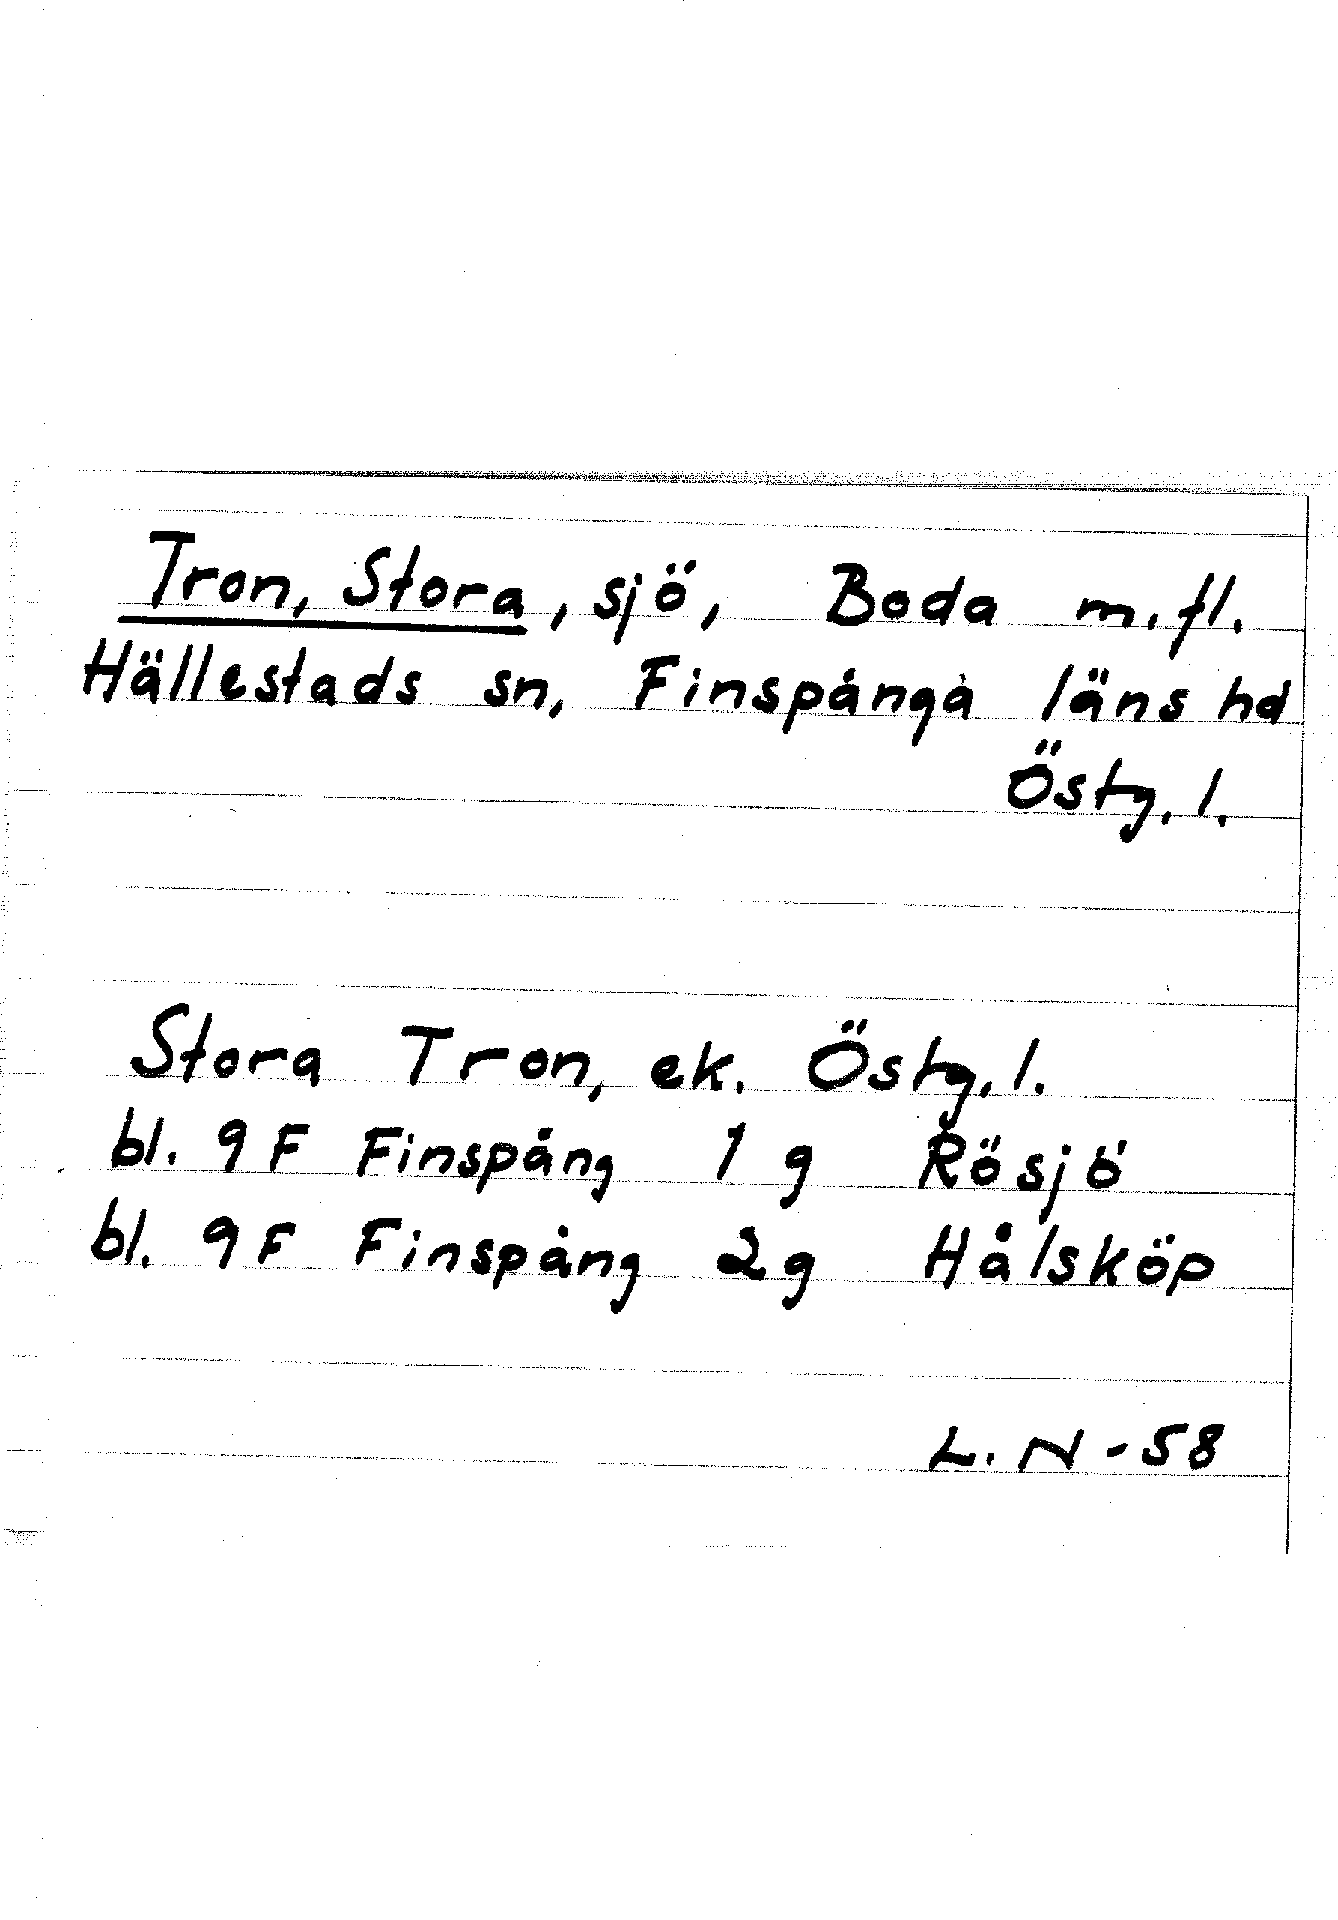 Tron, Stora, sjö, Boda m.fl.
Hällestads sn, Finspånga läns hd
Östg. l.
Stora Tron, ek. Östg. l.
bl. 9 F Finspång 1 g Rösjö
bl. 9 F Finspång 2 g Hålsköp
L. N -58